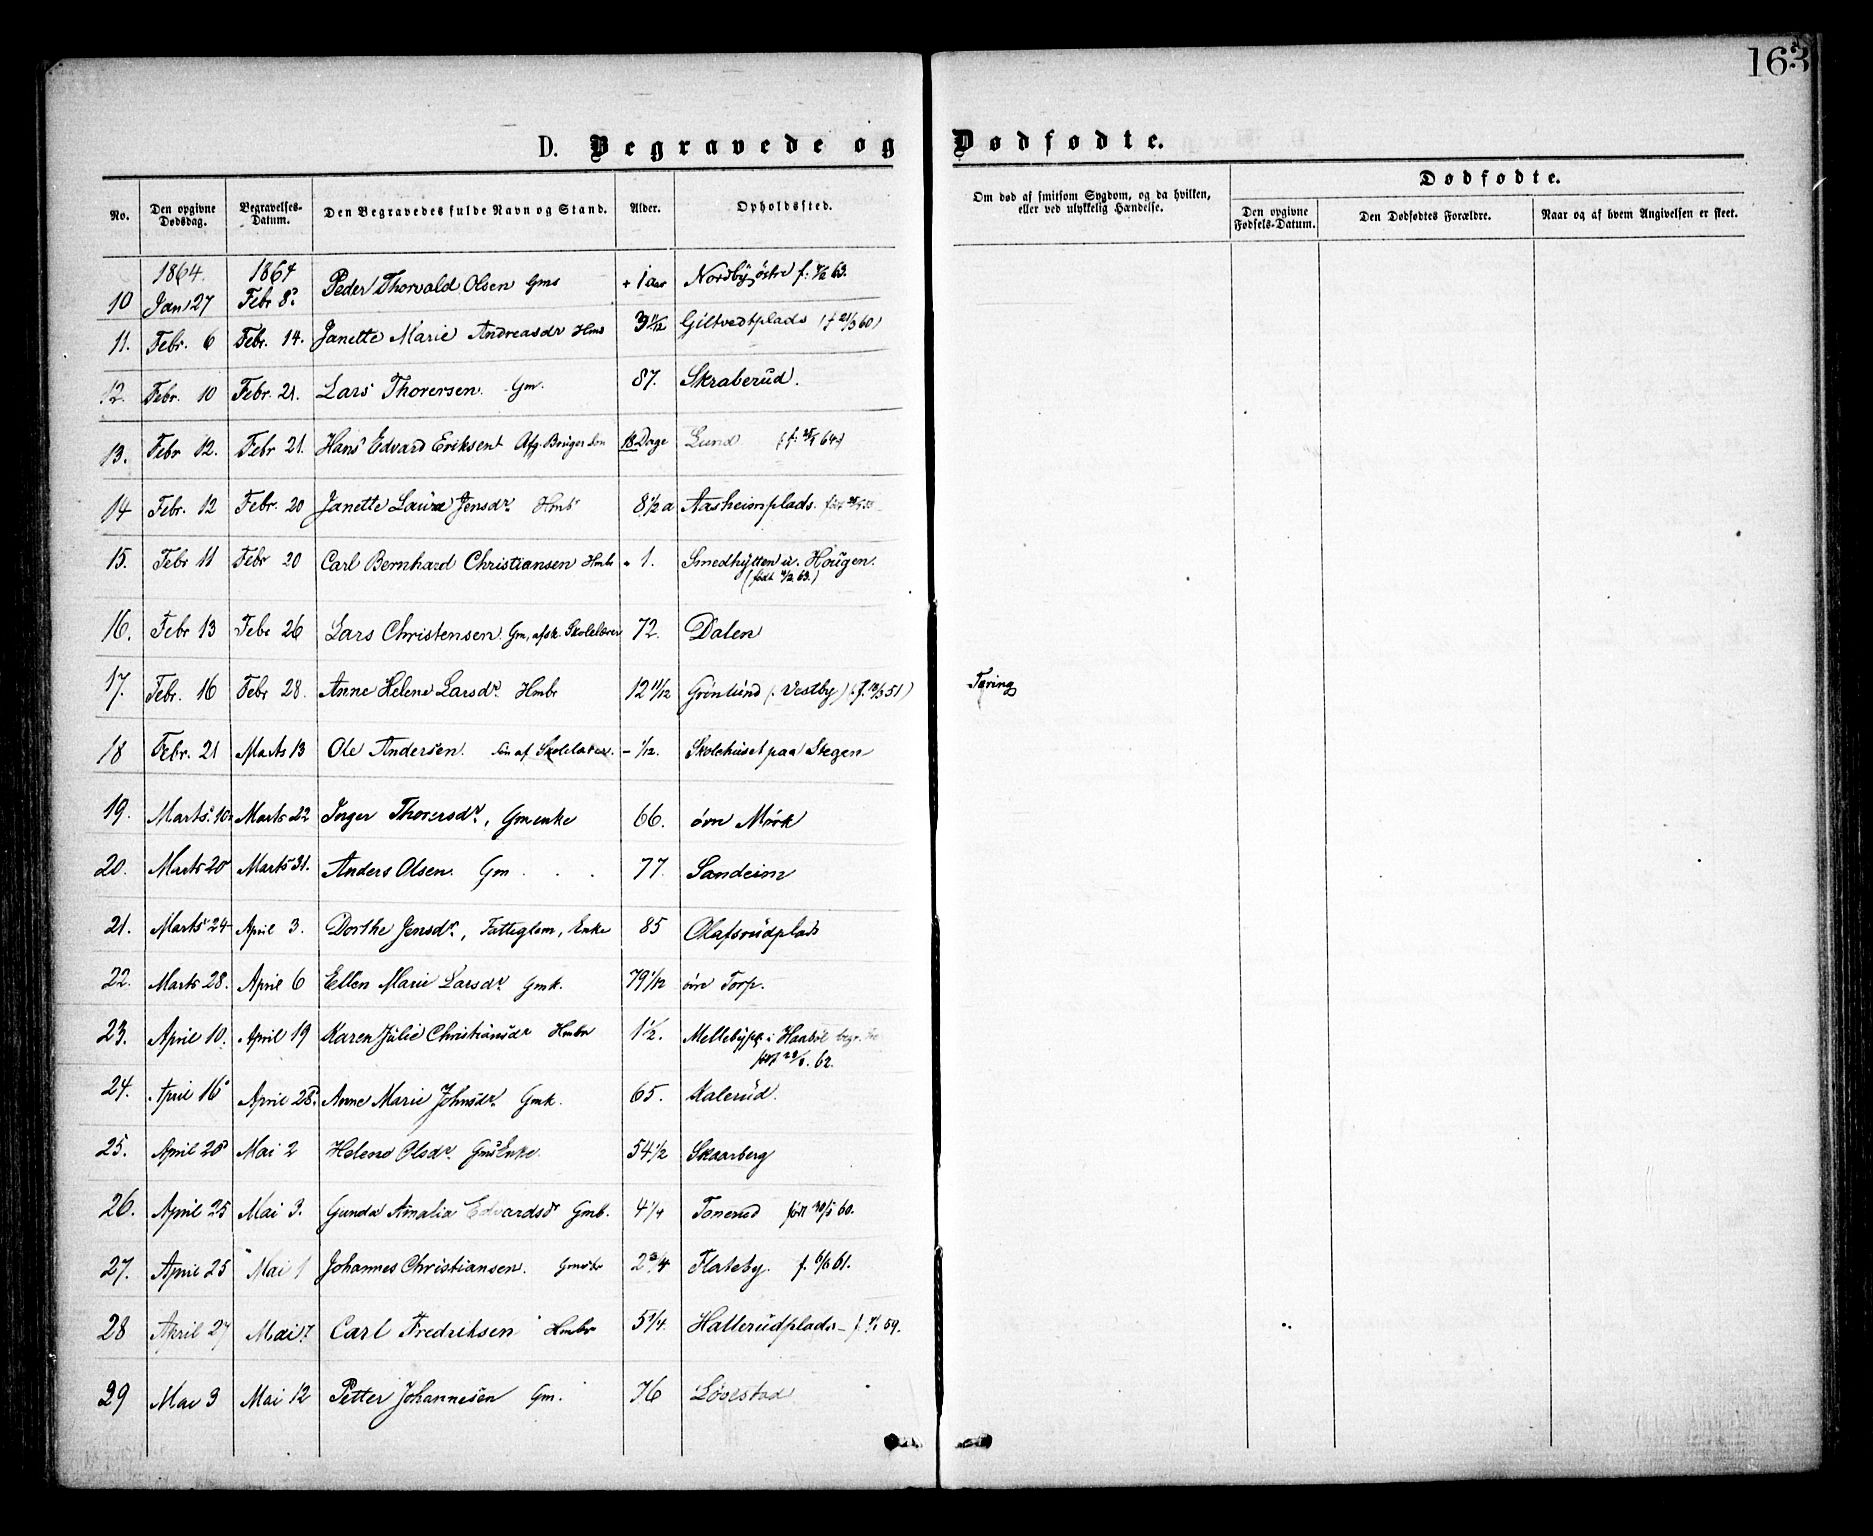 163
D. Begravede og Dødfødte.
No. Den opgivne Dødsdag. Begravelses-Datum. Den Begravedes fulde Navn og Stand. Alder. Opholdssted. Om død af smitsom Sygdom, og da hvilken, eller ved ulykkelig Hændelse. Dødfødte.
Den opgivne Fødsels-Datum. Den Dødfødtes Forældre. Naar og af hvem Angivelsen er skeet.
1864. 1864
10 Jan 27 Febr 8 Peder Thorvald Olsen Gms + 1 aar Nordby østre f: 63.
11. Febr. 6 Febr. 14. Janette Marie Andreasdr Hms 3 11/12 Giltvedtplads (f 21/3 60)
12. Febr. 10 Febr. 21. Lars Thorersen. Gm. 87. Skraberud.
13. Febr 12. Febr 21. Hans Edvard Eriksen Afg. Bruger Søn 18 Dage Lund (f: 64)
14 Febr. 12 Febr. 20 Janette Laura Jensdr. Hmb 8 1/2 a Aasheimplads.
15. Febr 11 Febr 20 Carl Bernhard Christiansen Hmbr 1. Smedhytten u. Hougen.
(født 63.)
16. Febr 13 Febr 26 Lars Christensen. Gm, afsk. Skolelærer 72. Dalen
17. Febr. 16 Febr 28. Anne Helene Larsdr. Hmbr 12 11/12 Grönlund (: Vestby) (f. 51) Tæring
18 Febr. 21 Marts 13 Ole Andersen. Søn af Skolelærer. – 1/12. Skolehuset paa Stegen
19. Marts 10 Marts 22 Inger Thorersdr., Gmenke 66. øvr Mörk
20. Marts 20 Marts 31. Anders Olsen. Gm 77. Sandeim
21. Marts 24 April 3. Dorthe Jensdr., Fattiglem, Enke 85 Olafsrudplads
22. Marts 28. April 6 Ellen Marie Larsdr. Gmk. 79 1/12 øvre Torp.
23. April 10. April 19 Karen Julie Christiansdr Hmbr 1 1/2. Mellebypl. i Haabøl begr.
født 62.
24. April 16 April 28. Anne Marie Johnsdr. Gmk. 65. Kalerud.
25. April 20 Mai 2 Helene Olsdr. Gms Enke. 54 1/2 Skaarberg
26. April 25 Mai 3. Gunda Amalia Edvardsdr Gmb. 4 1/4 Tonerud født 60.
27. April 25 Mai 1 Johannes Christiansen. Gmsbr 2 3/4 Flateby. f. 61.
28 April 27 Mai 7 Carl Fredriksen Hmbr 5 1/4. Hallerudplads – f. 59.
29 Mai 3 Mai 12 Petter Johannesen Gm. 76 Løvestad